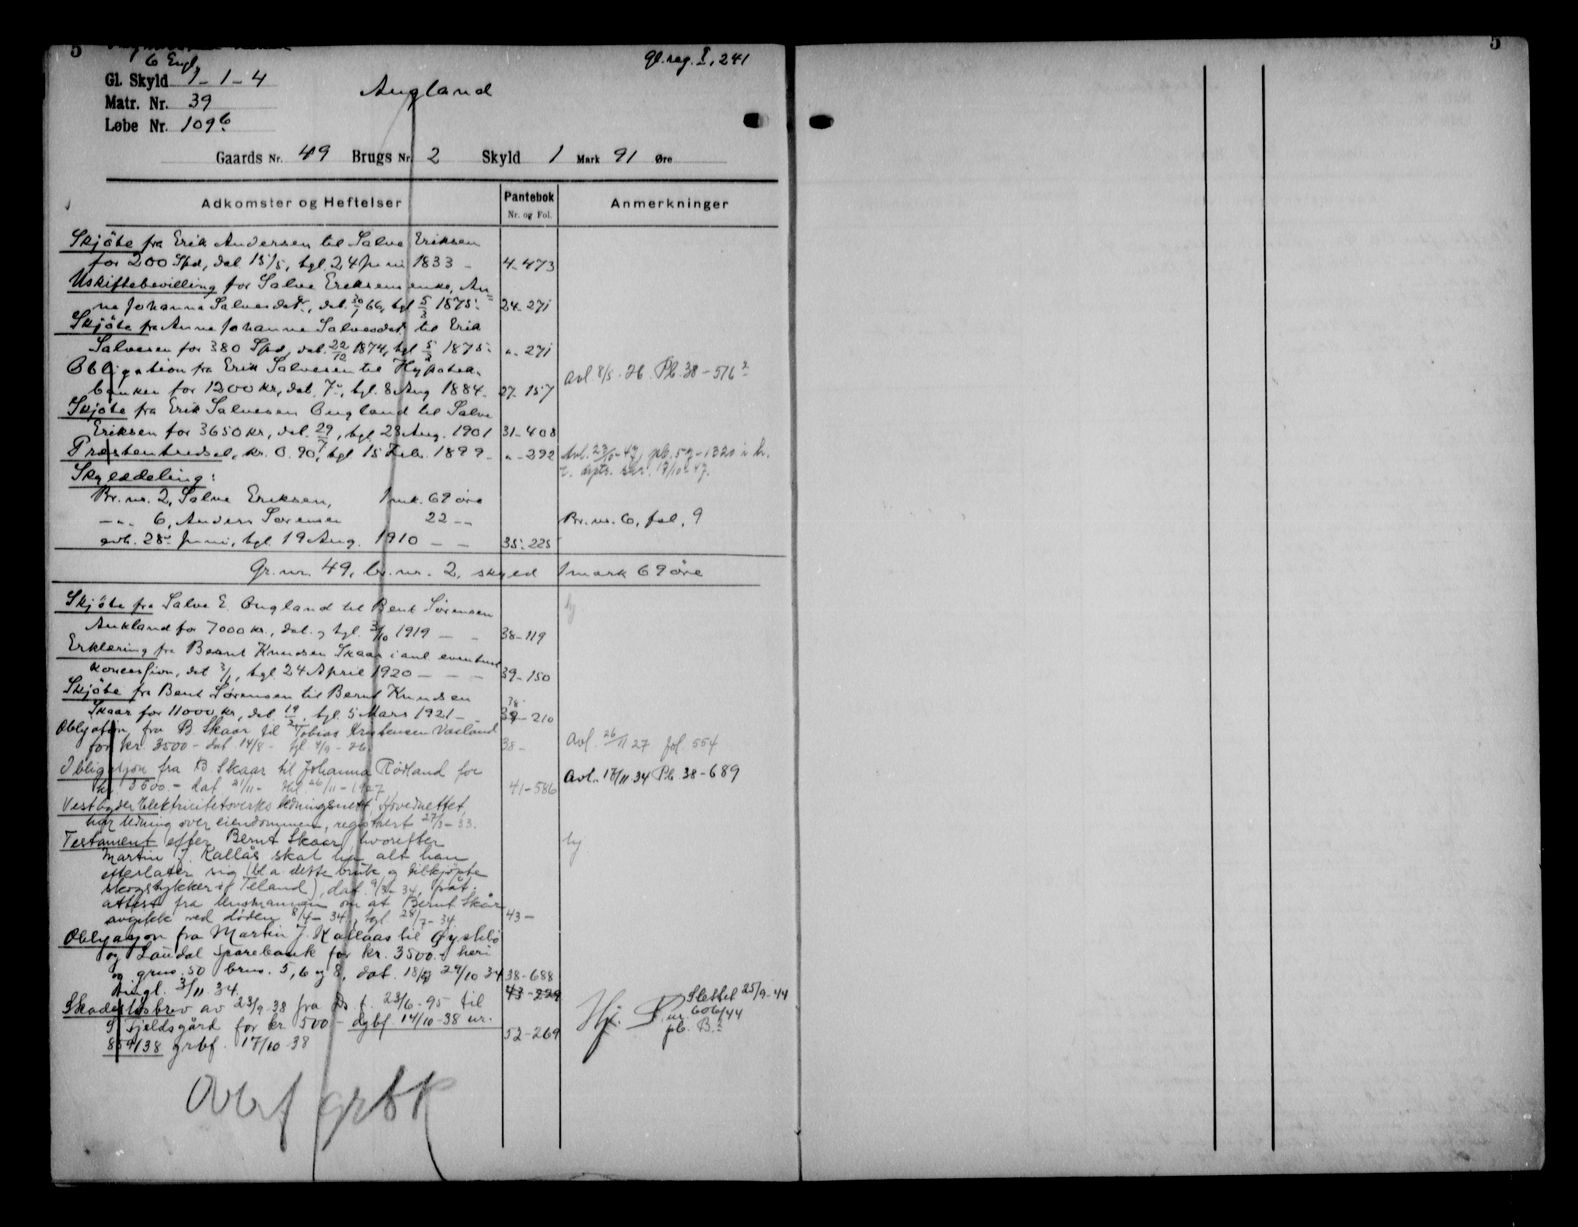 5
5
gl. reg. I, 241
6 Engl.
Gl. Skyld 1 - 1 - 4
Augland
Matr. Nr. 39
Løbe Nr. 109 b.
Gaards Nr. 49 Brugs Nr. 2 Skyld 1 Mark 91 Øre
Adkomster og Heftelser
Pantebok
Nr. og Fol.
Anmerkninger
Skjøte fra Erik Andersen til Salve Eriksen
for 200 Spd, dat 15/5, tgl. 24 Juni 1833 - 4-473
Uskiftebevilling for Salve Eriksens enke, An=
ne Johanne Salvesdatr., dat. 30/1 66, tgl 5/3 1875. 24-271
Skjøte fra Anne Johanne Salvesdatr til Erik
Salvesen for 380 Spd, dat. 22/12 1874, tgl 5/3 1875. "-271
Obligation fra Erik Salvesen til Hypothek-
banken for 1200 kr, dat. 7-, tgl. 8 Aug 1884- 27-157 Avl. 8/5-26. Pb. 38-516
Skjøte fra Erik Salvesen Øugland til Salve
Eriksen for 3650 kr, dat. 29/7, tgl 23 Aug. 1901 31-408
Præstentredsel, kr. 0.90, tgl 15 Febr. 1899- "-292
Skylddeling:
Br. nr. 2, Salve Eriksen, 1 mk. 69 øre
-"- 6, Anders Sørensen 22 -"- Br. nr. 6, fol. 9
avh. 28 Juni, tgl. 19 Aug. 1910 - - 35-225
Gr. nr. 49, br. nr. 2, skyld 1 mark 69 øre
Skjøte fra Salve E. Øugland til Bent Sørensen
Aukland for 7000 kr., dat. og tgl. 3/10 1919 - - 38-119
Erklæring fra Bernt Knudsen Skaar i anl eventuel
koncession, dat 3/1, tgl 24 April 1920 - - - 39-150
Skjøte fra Bent Sørensen til Bernt Knudsen
Skaar for 11000 kr, dat 19/2, tgl. 5 Mars 1921 - 38-210
Obligasjon fra B Skaar til Tobias Kristensen Vasland
for kr. 3500 - dat 14/8 - tgl 4/9-26 38- Avl. 26/11 27 fol. 554
Obligasjon fra B. Skaar til Johanna Rödland for
kr. 3500.- dat 21/11- tgl. 26/11-1927 41-586 Avl. 17/11 34 Pb. 38-689
Vestbygder Elektricitetsverks ledningsnett, Hovednettet,
har ledning over eiendommen, registrert 27/3-33.
Testament efter Bernt Skaar hvorefter
Martin J. Kallås skal ha alt han
efterlater sig (bl a dette bruk og tilkjøpte
skogstykker i Teland), dat. 9/3-34, påt.
attest fra lensmannen om at Bernt Skår
avgikk ved døden 8/4-34, tgl 28/7-34 43-
Obligasjon fra Martin J. Kallaas til Øyslebø
og Laudal Sparebank for kr. 3500.- heri
og grnr. 50 brnr. 5, 6 og 8, dat. 29/10 34 38-688
tingl. 3/11 34. 43-229
Skadesløsbrev av 23/9-38 fra Ds f. 23/6-95 til
S Fjeldsgård for kr 500 - dgbf 14/10-38 nr. 52-269
859/38 grbf. 17/10-38
Slettet 25/9-44
nr. 606/44
pb. B.
Overf grbk